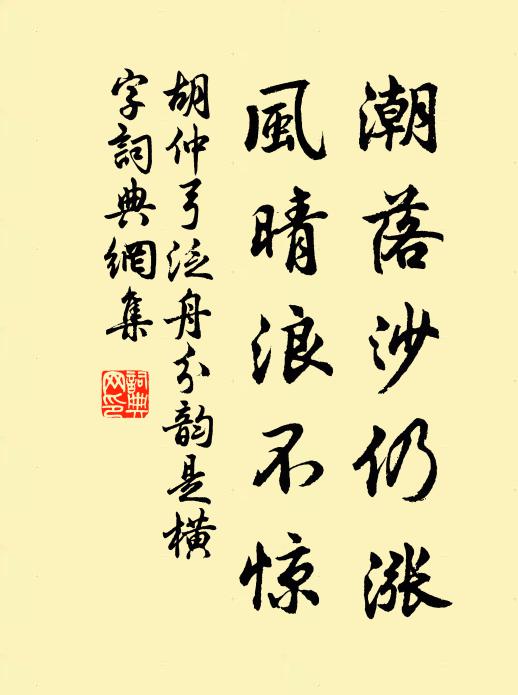 潮落沙仍漲
風晴浪不惊
胡仲弓泛舟分韵是橫
字詞典網集
詞典网印